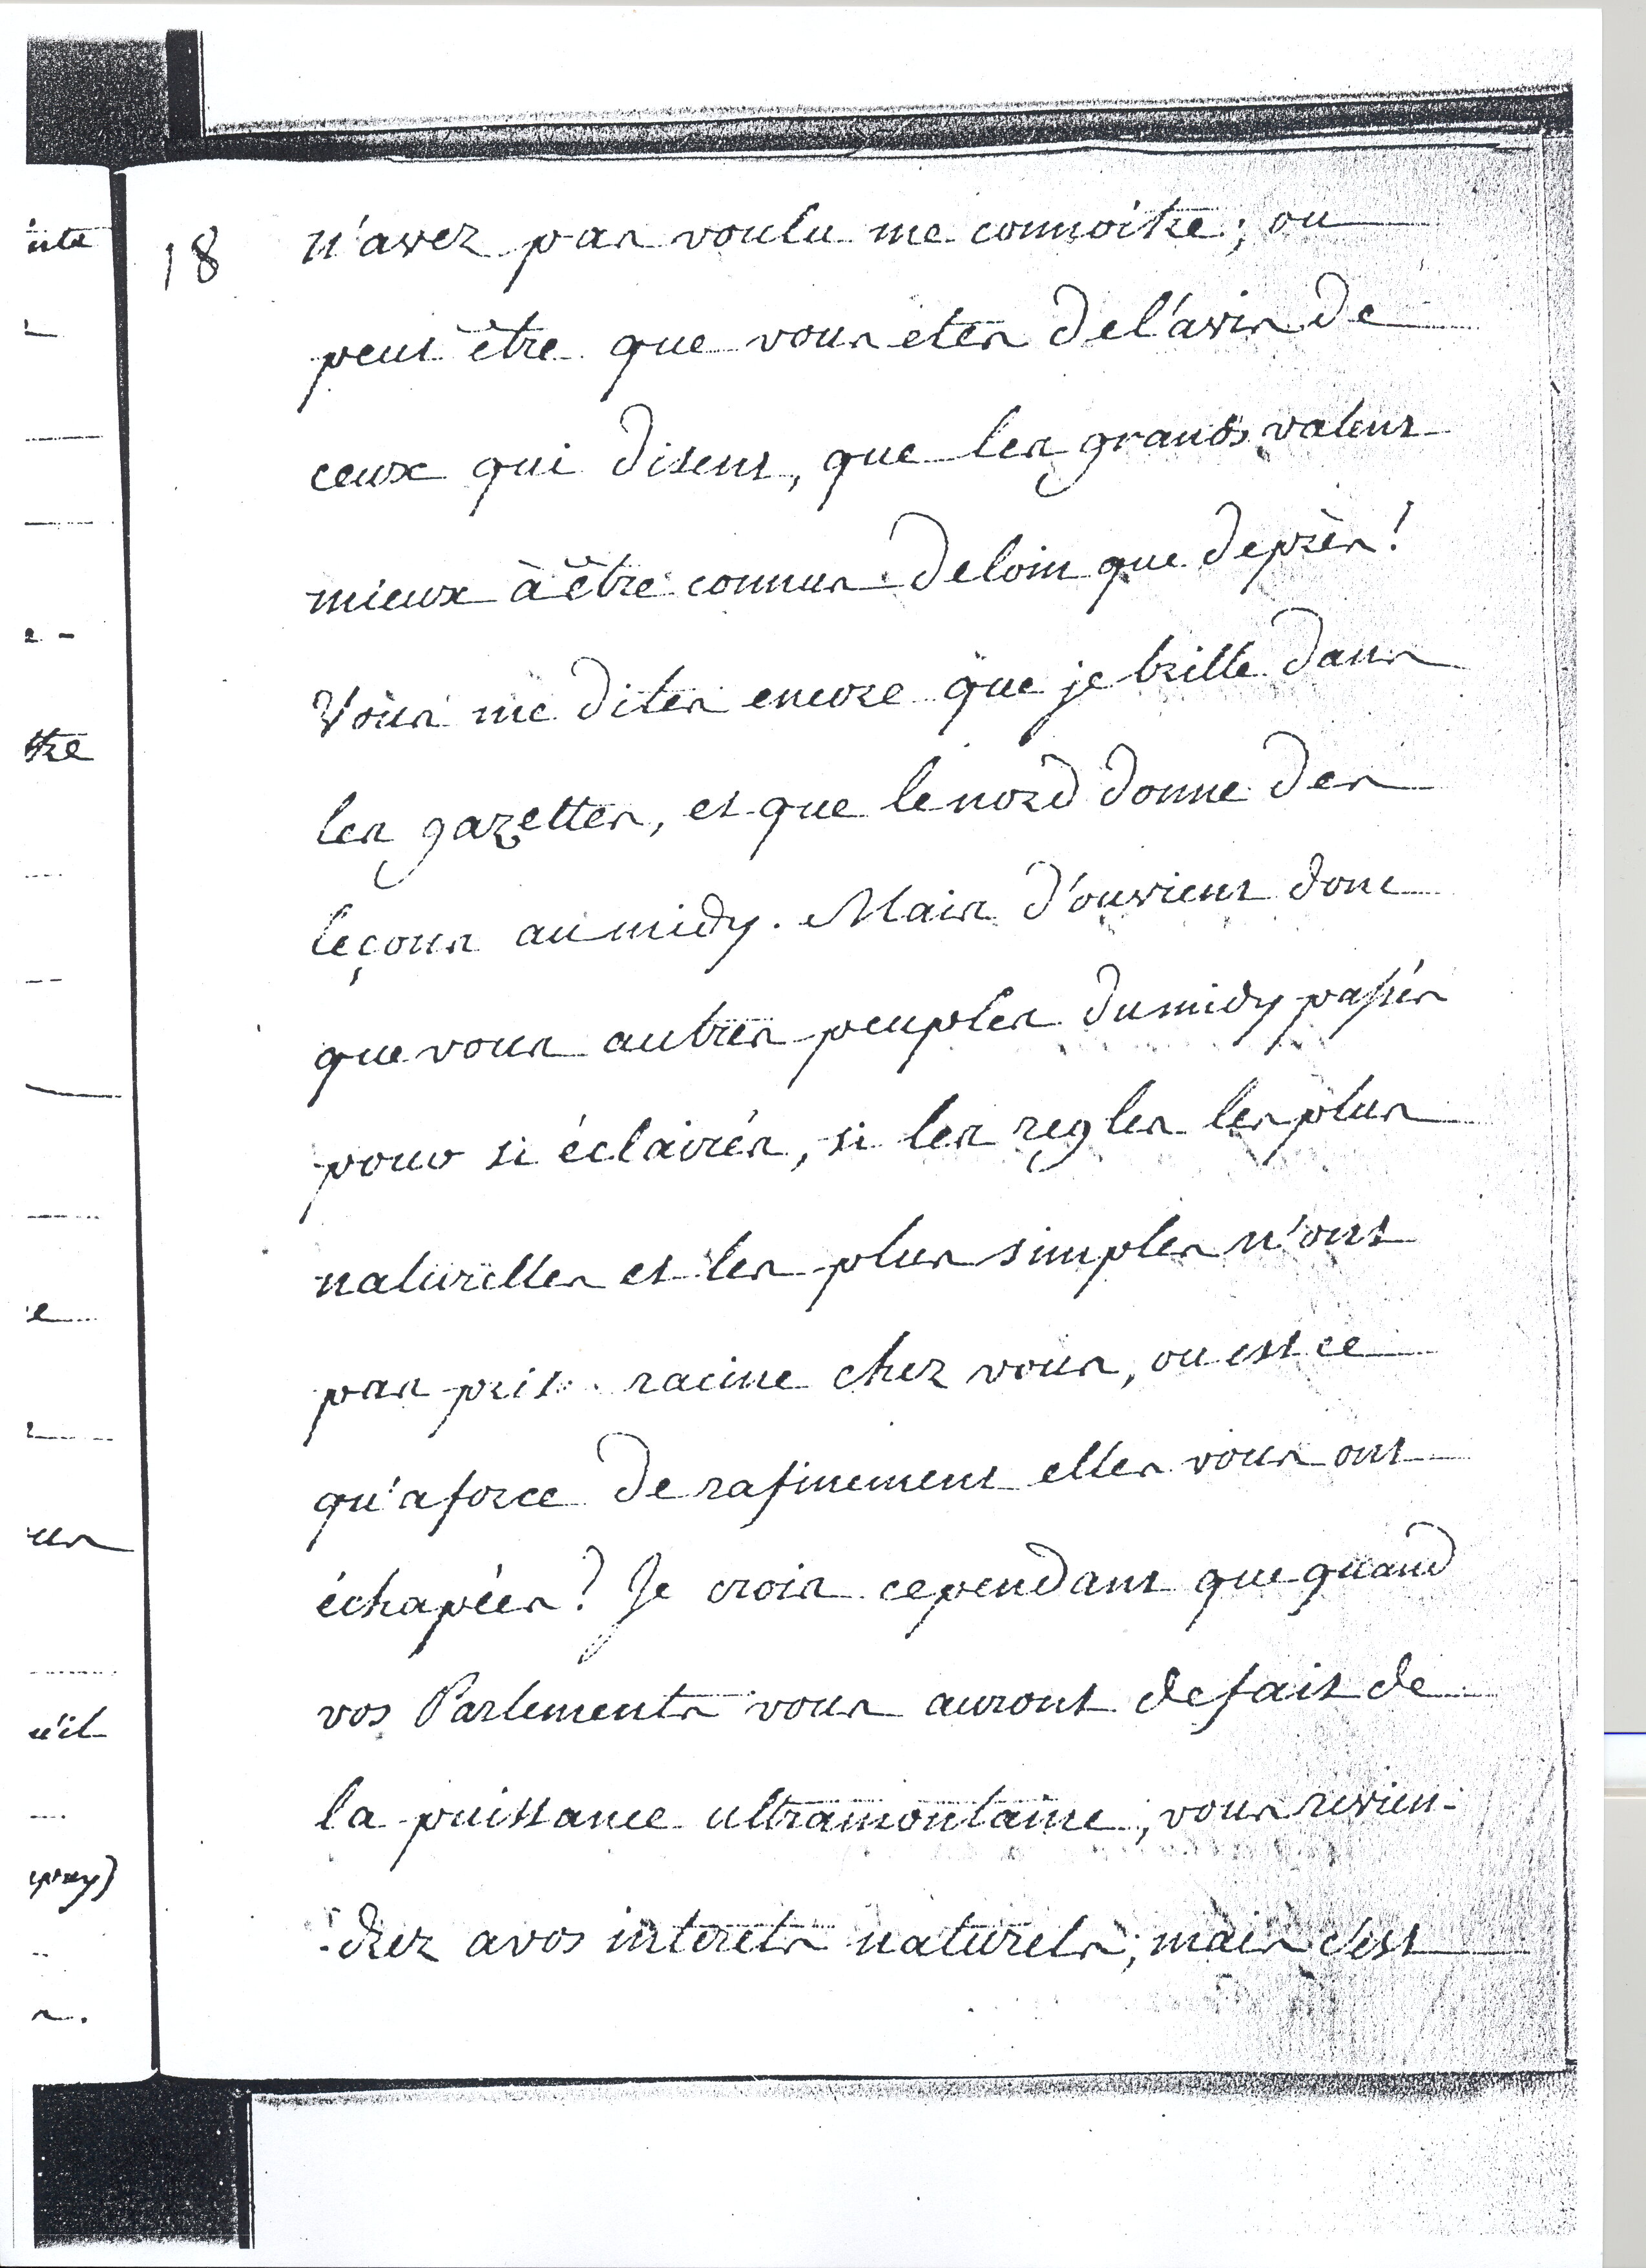 18
n'avez pas voulu me connoitre; ou
peut être que vous etes de l'avis de
ceux qui disent, que les grands valent
mieux à être connus de loin que de près!
Vous me dites encore que je brille dans
les gazettes, et que le nord donne des
leçons au midy. Mais d'ou vient donc
que vous autres peuples du midy passés
pour si éclairés, si les regles les plus
naturelles et les plus simples n'ont
pas pris racine chez vous, ou est ce
qu'a force de rafinement elles vous ont
échapées? Je crois cependant que quand
vos Parlements vous auront defait de
la puissance ultramontaine, vous revien-
-drez a vos interets naturels; mais c'est